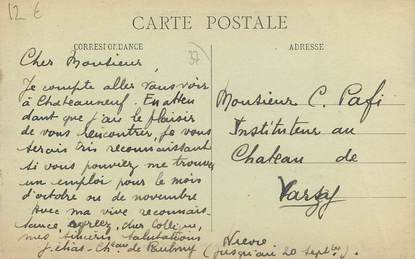 12 €
CARTE POSTALE
CORRESPONDANCE
37
ADRESSE
Cher Monsieur,
Je compte aller vous voir
à Chateauneuf. En atten
dant que j'aie le plaisir
de vous rencontrer, je vous
serais très reconnaissant
si vous pouviez me trouver
un emploi pour le mois
d'octobre ou de novembre
Avec ma vive reconnais-
sance, agréez, cher Collègue,
mes sincères salutations
Ch^eau de
Monsieur C. Pafi
Instituteur au
Chateau de
Varzy
Nièvre
(Jusqu'au 20 sept^bre).